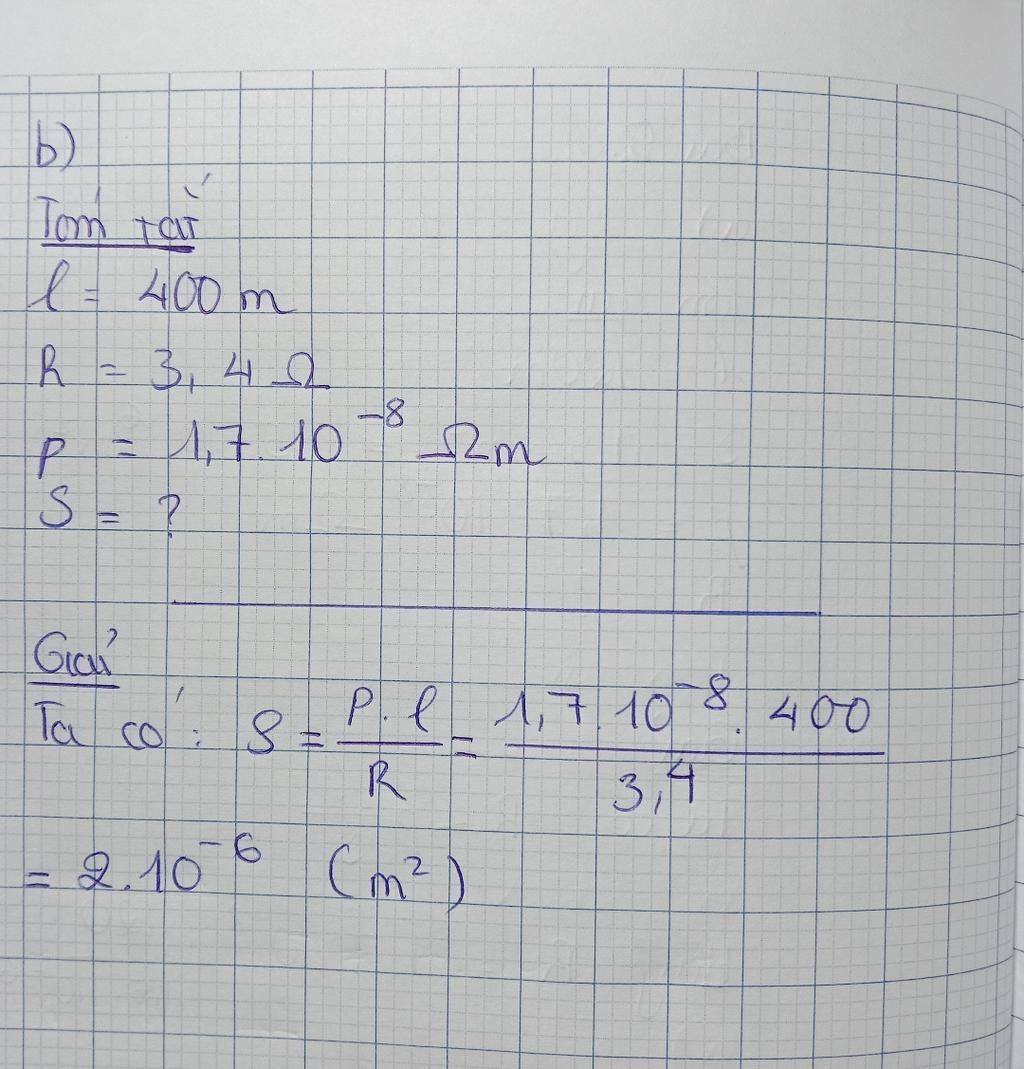 b)
Tóm tắt
l = 400 m
R = 3,4 Ω
ρ = 1,7.10⁻⁸ Ωm
S = ?
Giải
Ta có: S = ρ.l / R = 1,7.10⁻⁸.400 / 3,4
= 2.10⁻⁶ (m²)